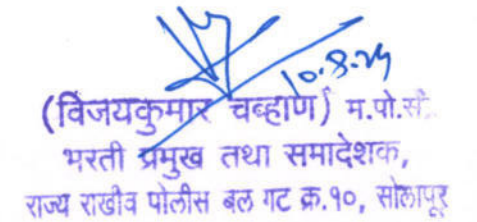 10.8.25
(विजयकुमार चव्हाण) म.पो.से.
भरती प्रमुख तथा समादेशक,
राज्य राखीव पोलीस बल गट क्र.१०, सोलापूर